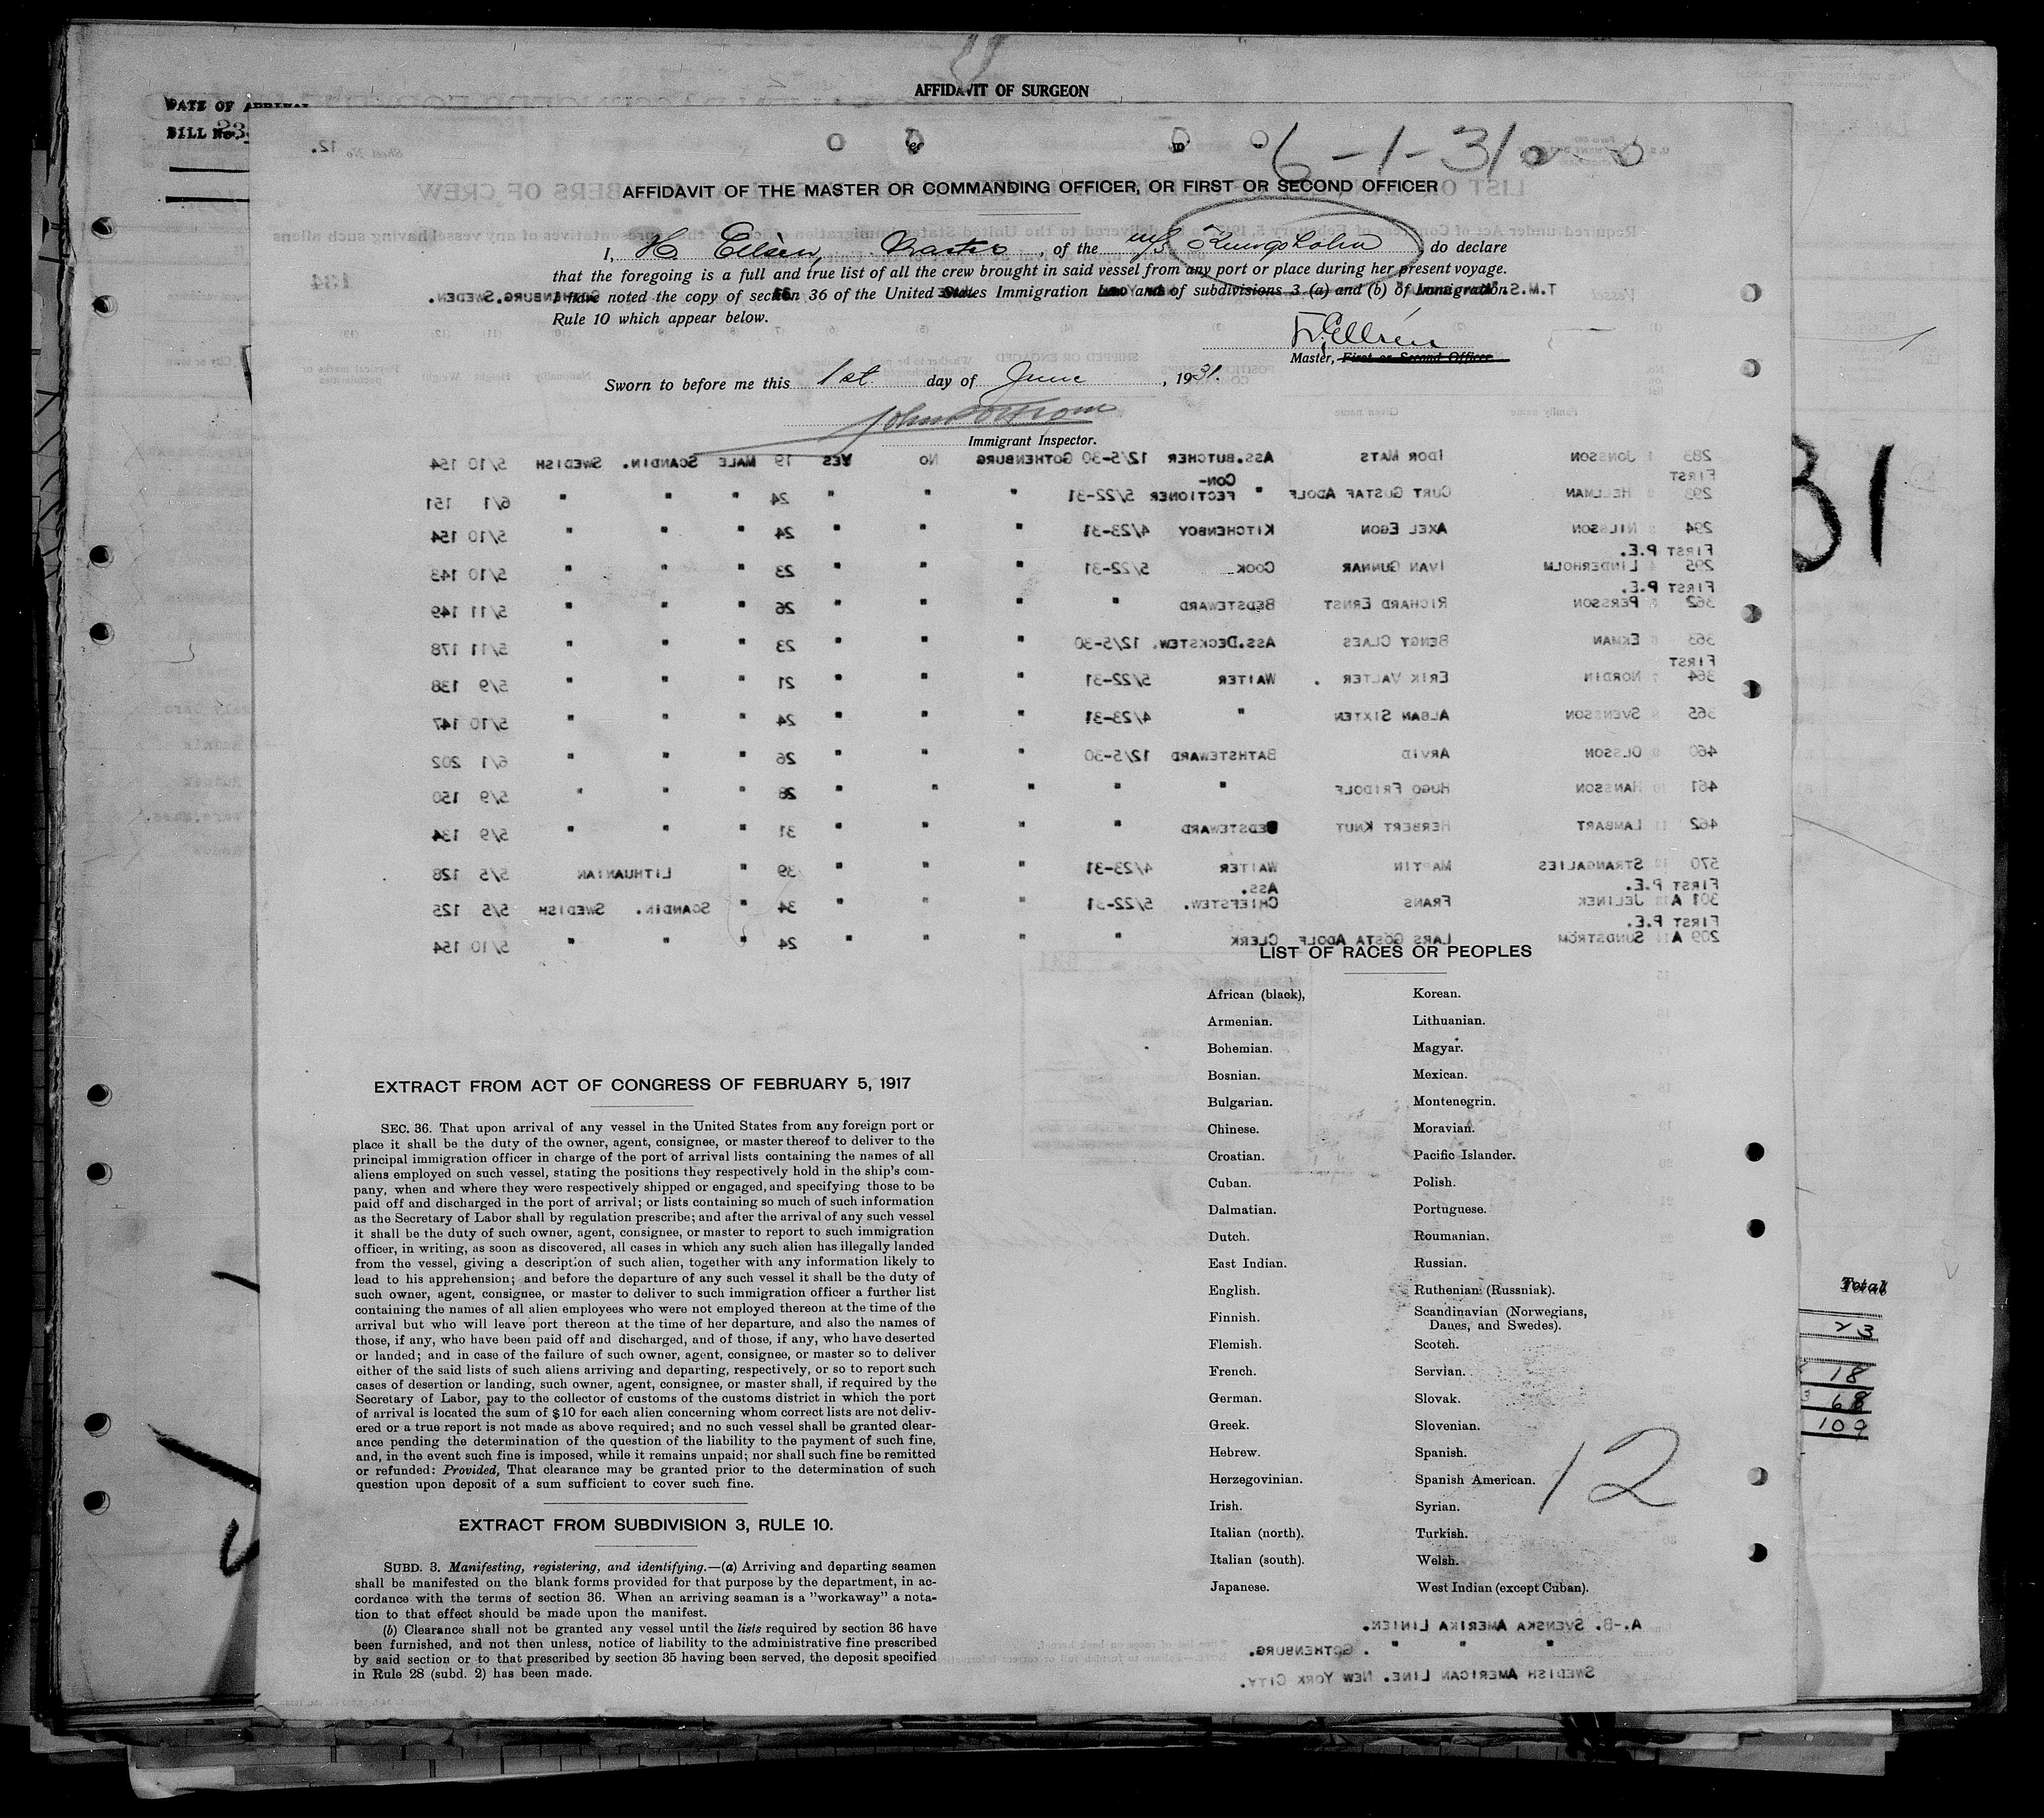 AFFIDAVIT OF SURGEON
DATE OF ARRIVAL
BILL No.
Sheet No 12.
6-1-31
AFFIDAVIT OF THE MASTER OR COMMANDING OFFICER, OR FIRST OR SECOND OFFICER
I, H. Ellsén, Master, of the m/s Kungsholm, do declare
that the foregoing is a full and true list of all the crew brought in said vessel from any port or place during her present voyage.
I have noted the copy of section 36 of the United States Immigration Law and of subdivisions 3 (a) and (b) of Immigration
Rule 10 which appear below.
GOTHENBURG, SWEDEN.
Master, First or Second Officer
Sworn to before me this 1st day of June, 1931.
Immigrant Inspector.
283 1 JONSSON IDOR MATS ASS.BUTCHER 12/5-30 GOTHENBURG NO YES 19 MALE SCANDIN. SWEDISH 5/10 154
FIRST CON-
293 2 HELLMAN CURT GUSTAF ADOLF " FECTIONER 5/22-31 " " " 24 " " " 6/1 151
294 3 NILSSON AXEL EGON KITCHENBOY 4/23-31 " " " 24 " " " 5/10 154
FIRST P.E.
295 4 LINDERHOLM IVAN GUNNAR COOK 5/22-31 " " " 23 " " " 5/10 143
FIRST P.E.
362 5 PERSSON RICHARD ERNST BEDSTEWARD " " " " 26 " " " 5/11 149
363 6 EKMAN BENGT CLAES ASS.DECKSTEW. 12/5-30 " " " 23 " " " 5/11 178
FIRST
364 7 NORDIN ERIK VALTER . WAITER 5/22-31 " " " 21 " " " 5/9 138
365 8 SVENSSON ALBAN SIXTEN " 4/23-31 " " " 24 " " " 5/10 147
460 9 OLSSON ARVID BATHSTEWARD 12/5-30 " " " 26 " " " 6/1 202
461 10 HANSSON HUGO FRIDOLF " " " " " 28 " " " 5/9 150
462 11 LAMBART HERBERT KNUT BEDSTEWARD " " " " 31 " " " 5/9 134
570 12 STRANGALIES MARTIN WAITER 4/23-31 " " " 39 " LITHUANIAN 5/5 128
FIRST P.E. ASS.
301 A 13 JELINEK FRANS CHIEFSTEW. 5/22-31 " " " 34 " SCANDIN. SWEDISH 5/5 125
FIRST P.E.
209 A 14 SUNDSTRÖM LARS GÖSTA ADOLF CLERK " " " " 24 " " " 5/10 154
LIST OF RACES OR PEOPLES
African (black), Korean.
Armenian. Lithuanian.
Bohemian. Magyar.
Bosnian. Mexican.
Bulgarian. Montenegrin.
Chinese. Moravian.
Croatian. Pacific Islander.
Cuban. Polish.
Dalmatian. Portuguese.
Dutch. Roumanian.
East Indian. Russian.
English. Ruthenian (Russniak).
Finnish. Scandinavian (Norwegians,
Danes, and Swedes).
Flemish. Scotch.
French. Servian.
German. Slovak.
Greek. Slovenian.
Hebrew. Spanish.
Herzegovinian. Spanish American.
Irish. Syrian.
Italian (north). Turkish.
Italian (south). Welsh.
Japanese. West Indian (except Cuban).
12
EXTRACT FROM ACT OF CONGRESS OF FEBRUARY 5, 1917
SEC. 36. That upon arrival of any vessel in the United States from any foreign port or
place it shall be the duty of the owner, agent, consignee, or master thereof to deliver to the
principal immigration officer in charge of the port of arrival lists containing the names of all
aliens employed on such vessel, stating the positions they respectively hold in the ship's com-
pany, when and where they were respectively shipped or engaged, and specifying those to be
paid off and discharged in the port of arrival; or lists containing so much of such information
as the Secretary of Labor shall by regulation prescribe; and after the arrival of any such vessel
it shall be the duty of such owner, agent, consignee, or master to report to such immigration
officer, in writing, as soon as discovered, all cases in which any such alien has illegally landed
from the vessel, giving a description of such alien, together with any information likely to
lead to his apprehension; and before the departure of any such vessel it shall be the duty of
such owner, agent, consignee, or master to deliver to such immigration officer a further list
containing the names of all alien employees who were not employed thereon at the time of the
arrival but who will leave port thereon at the time of her departure, and also the names of
those, if any, who have been paid off and discharged, and of those, if any, who have deserted
or landed; and in case of the failure of such owner, agent, consignee, or master so to deliver
either of the said lists of such aliens arriving and departing, respectively, or so to report such
cases of desertion or landing, such owner, agent, consignee, or master shall, if required by the
Secretary of Labor, pay to the collector of customs of the customs district in which the port
of arrival is located the sum of $10 for each alien concerning whom correct lists are not deliv-
ered or a true report is not made as above required; and no such vessel shall be granted clear-
ance pending the determination of the question of the liability to the payment of such fine,
and, in the event such fine is imposed, while it remains unpaid; nor shall such fine be remitted
or refunded: Provided, That clearance may be granted prior to the determination of such
question upon deposit of a sum sufficient to cover such fine.
EXTRACT FROM SUBDIVISION 3, RULE 10.
SUBD. 3. Manifesting, registering, and identifying.—(a) Arriving and departing seamen
shall be manifested on the blank forms provided for that purpose by the department, in ac-
cordance with the terms of section 36. When an arriving seaman is a "workaway" a nota-
tion to that effect should be made upon the manifest.
(b) Clearance shall not be granted any vessel until the lists required by section 36 have
been furnished, and not then unless, notice of liability to the administrative fine prescribed
by said section or to that prescribed by section 35 having been served, the deposit specified
in Rule 28 (subd. 2) has been made.
A.-B. SVENSKA AMERIKA LINIEN.
" " " . GOTHENBURG.
SWEDISH AMERICAN LINE. NEW YORK CITY.
31
Total
23
18
68
109